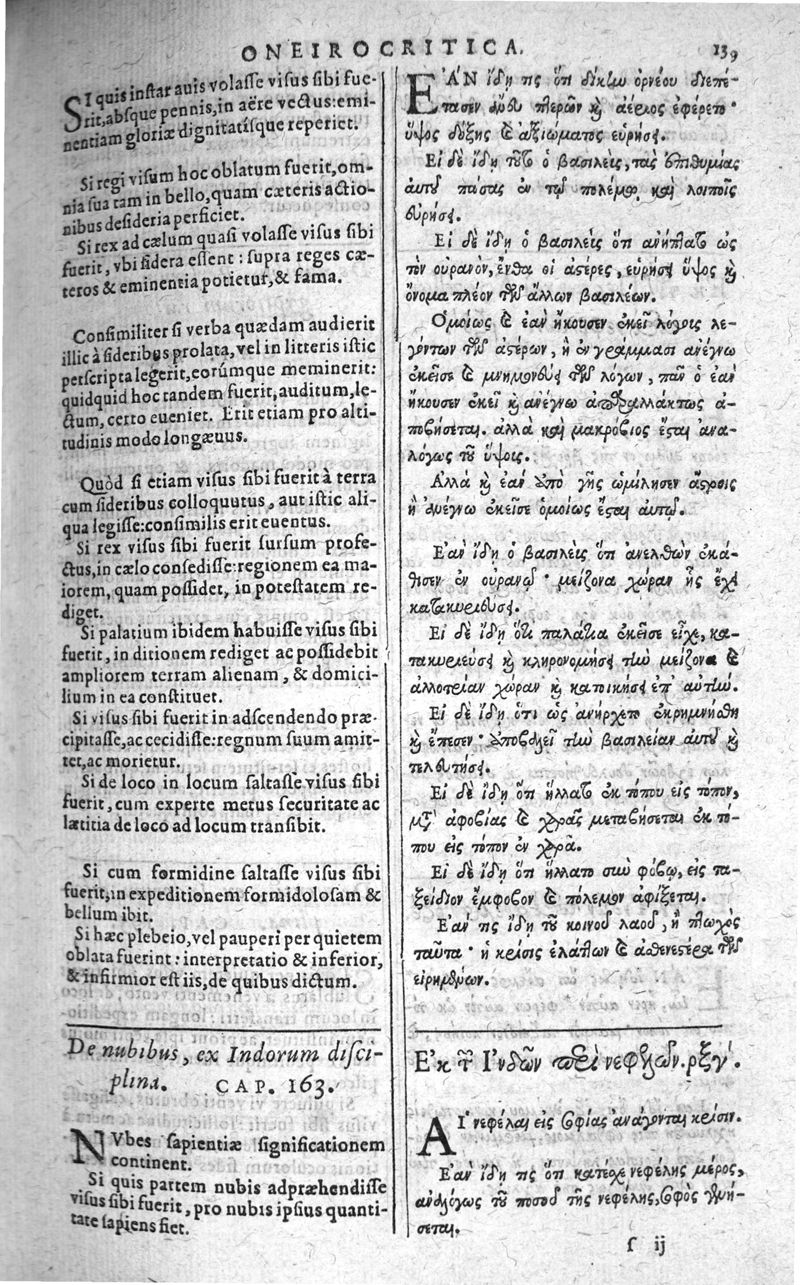 ONEIROCRITICA. 139
SI quis instar auis volasse visus sibi fue-
rit, absque pennis, in aëre vectus: emi-
nentiam gloriæ dignitatisque reperiet.
Si regi visum hoc oblatum fuerit, om-
nia sua tam in bello, quam cæteris actio-
nibus desideria perficiet.
Si rex ad cælum quasi volasse visus sibi
fuerit, vbi sidera essent: supra reges cæ-
teros & eminentia potietur, & fama.
Consimiliter si verba quædam audierit
illic à sideribus prolata, vel in litteris istic
perscripta legerit, eorúmque meminerit:
quidquid hoc tandem fuerit, auditum, le-
ctum, certo eueniet. Erit etiam pro alti-
tudinis modo longæuus.
Quòd si etiam visus sibi fuerit à terra
cum sideribus colloquutus, aut istic ali-
qua legisse: consimilis erit euentus.
Si rex visus sibi fuerit sursum profe-
ctus, in cælo consedisse: regionem ea ma-
iorem, quam possidet, in potestatem re-
diget.
Si palatium ibidem habuisse visus sibi
fuerit, in ditionem rediget ac possidebit
ampliorem terram alienam, & domici-
lium in ea constituet.
Si visus sibi fuerit in adscendendo præ-
cipitasse, ac cecidisse: regnum suum amit-
tet, ac morietur.
Si de loco in locum saltasse visus sibi
fuerit, cum experte metus securitate ac
lætitia de loco ad locum transibit.
Si cum formidine saltasse visus sibi
fuerit, in expeditionem formidolosam &
bellum ibit.
Si hæc plebeio, vel pauperi per quietem
oblata fuerint: interpretatio & inferior,
& infirmior est iis, de quibus dictum.
De nubibus, ex Indorum disci-
plina. CAP. 163.
NVbes sapientiæ significationem
continent.
Si quis partem nubis adpræhendisse
visus sibi fuerit, pro nubis ipsius quanti-
tate sapiens fiet.
ΕΑΝ ἴδῃ τις ὅτι δίκην ὀρνέου διεπέ-
τασεν ἄνευ πτερῶν καὶ ἀέριος ἐφέρετο·
ὕψος δόξης καὶ ἀξιώματος εὑρήσει.
Εἰ δὲ ἴδῃ τοῦτο ὁ βασιλεὺς, τὰς ἐπιθυμίας
αὐτοῦ πάσας ἐν τῷ πολέμῳ, καὶ λοιποῖς
εὑρήσει.
Εἰ δὲ ἴδῃ ὁ βασιλεὺς ὅτι ἀνήπλατο ὡς
τὸν οὐρανὸν, ἔνθα οἱ ἀστέρες, εὑρήσει ὕψος καὶ
ὄνομα πλέον τῶν ἄλλων βασιλέων.
Ὁμοίως καὶ ἐὰν ἤκουσεν ἐκεῖ λόγοις λε-
γόντων τῶν ἀστέρων, ἢ ἐν γράμμασι ἀνέγνω
ἐκεῖσε καὶ μνημονεύει τῶν λόγων, πᾶν ὃ ἐὰν
ἤκουσεν ἐκεῖ καὶ ἀνέγνω ἀπαραλλάκτως ἀ-
ποβήσεται. ἀλλὰ καὶ μακρόβιος ἔσται ἀνα-
λόγως τοῦ ὕψοις.
Ἀλλὰ καὶ ἐὰν ἀπὸ γῆς ὡμίλησεν ἄστροις
ἢ ἀνέγνω ἐκεῖσε ὁμοίως ἔσται αὐτῷ.
Ἐὰν ἴδῃ ὁ βασιλεὺς ὅτι ἀνελθὼν ἐκά-
θισεν ἐν οὐρανῷ· μείζονα χώραν ἧς ἔχει
κατακυριεύσει.
Εἰ δὲ ἴδῃ ὅτι παλάτια ἐκεῖσε εἶχε, κα-
τακυριεύσει καὶ κληρονομήσει τὴν μείζονα καὶ
ἀλλοτρίαν χώραν καὶ κατοικήσει ἐπ' αὐτήν.
Εἰ δὲ ἴδῃ ὅτι ὡς ἀνήρχετο ἐκρημνήσθη
καὶ ἔπεσεν· ἀποβαλεῖ τὴν βασιλείαν αὐτοῦ καὶ
τελευτήσει.
Εἰ δὲ ἴδῃ ὅτι ἥλλατο ἐκ τόπου εἰς τόπον,
μετὰ ἀφοβίας καὶ χαρᾶς μεταβήσεται ἐκ τό-
που εἰς τόπον ἐν χαρᾷ.
Εἰ δὲ ἴδῃ ὅτι ἥλλατο σὺν φόβῳ, εἰς τα-
ξείδιον ἔμφοβον καὶ πόλεμον ἀφίξεται.
Ἐάν τις ἴδῃ τοῦ κοινοῦ λαοῦ, ἢ πτωχὸς
ταῦτα· ἡ κρίσις ἐλάττων καὶ ἀσθενεστέρα τῶν
εἰρημένων.
Ἐκ τῶν Ἰνδῶν περὶ νεφελῶν. ρξγ'.
ΑἹ νεφέλαι εἰς σοφίας ἀνάγονται κρίσιν.
Ἐὰν ἴδῃ τις ὅτι κατέσχε νεφέλης μέρος,
ἀναλόγως τοῦ ποσοῦ τῆς νεφέλης, σοφὸς γενή-
σεται.
ſ ij